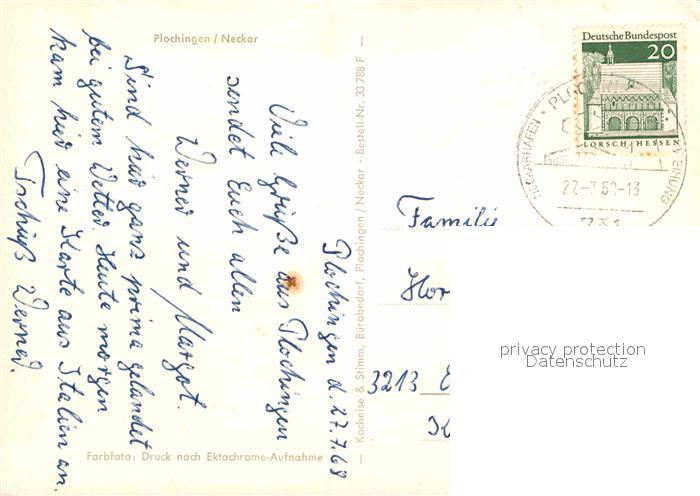 Plochingen / Neckar
Plochingen d. 27.7.68
Viele Grüße aus Plochingen
sendet Euch allen
Werner und Margot.
Sind hier ganz prima gelandet
bei gutem Wetter. Heute morgen
kam hier eine Karte aus Italien an.
Tschüß Werner.
Farbfoto: Druck nach Ektachrome-Aufnahme
Kocheise & Stimm, Bürobedarf, Plochingen / Neckar · Bestell-Nr. 33 788 F
Deutsche Bundespost
20
LORSCH / HESSEN
NECKARHAFEN · PLOC
27.-7.68-13
731
Familie
Hor
3213 E
K
privacy protection
Datenschutz